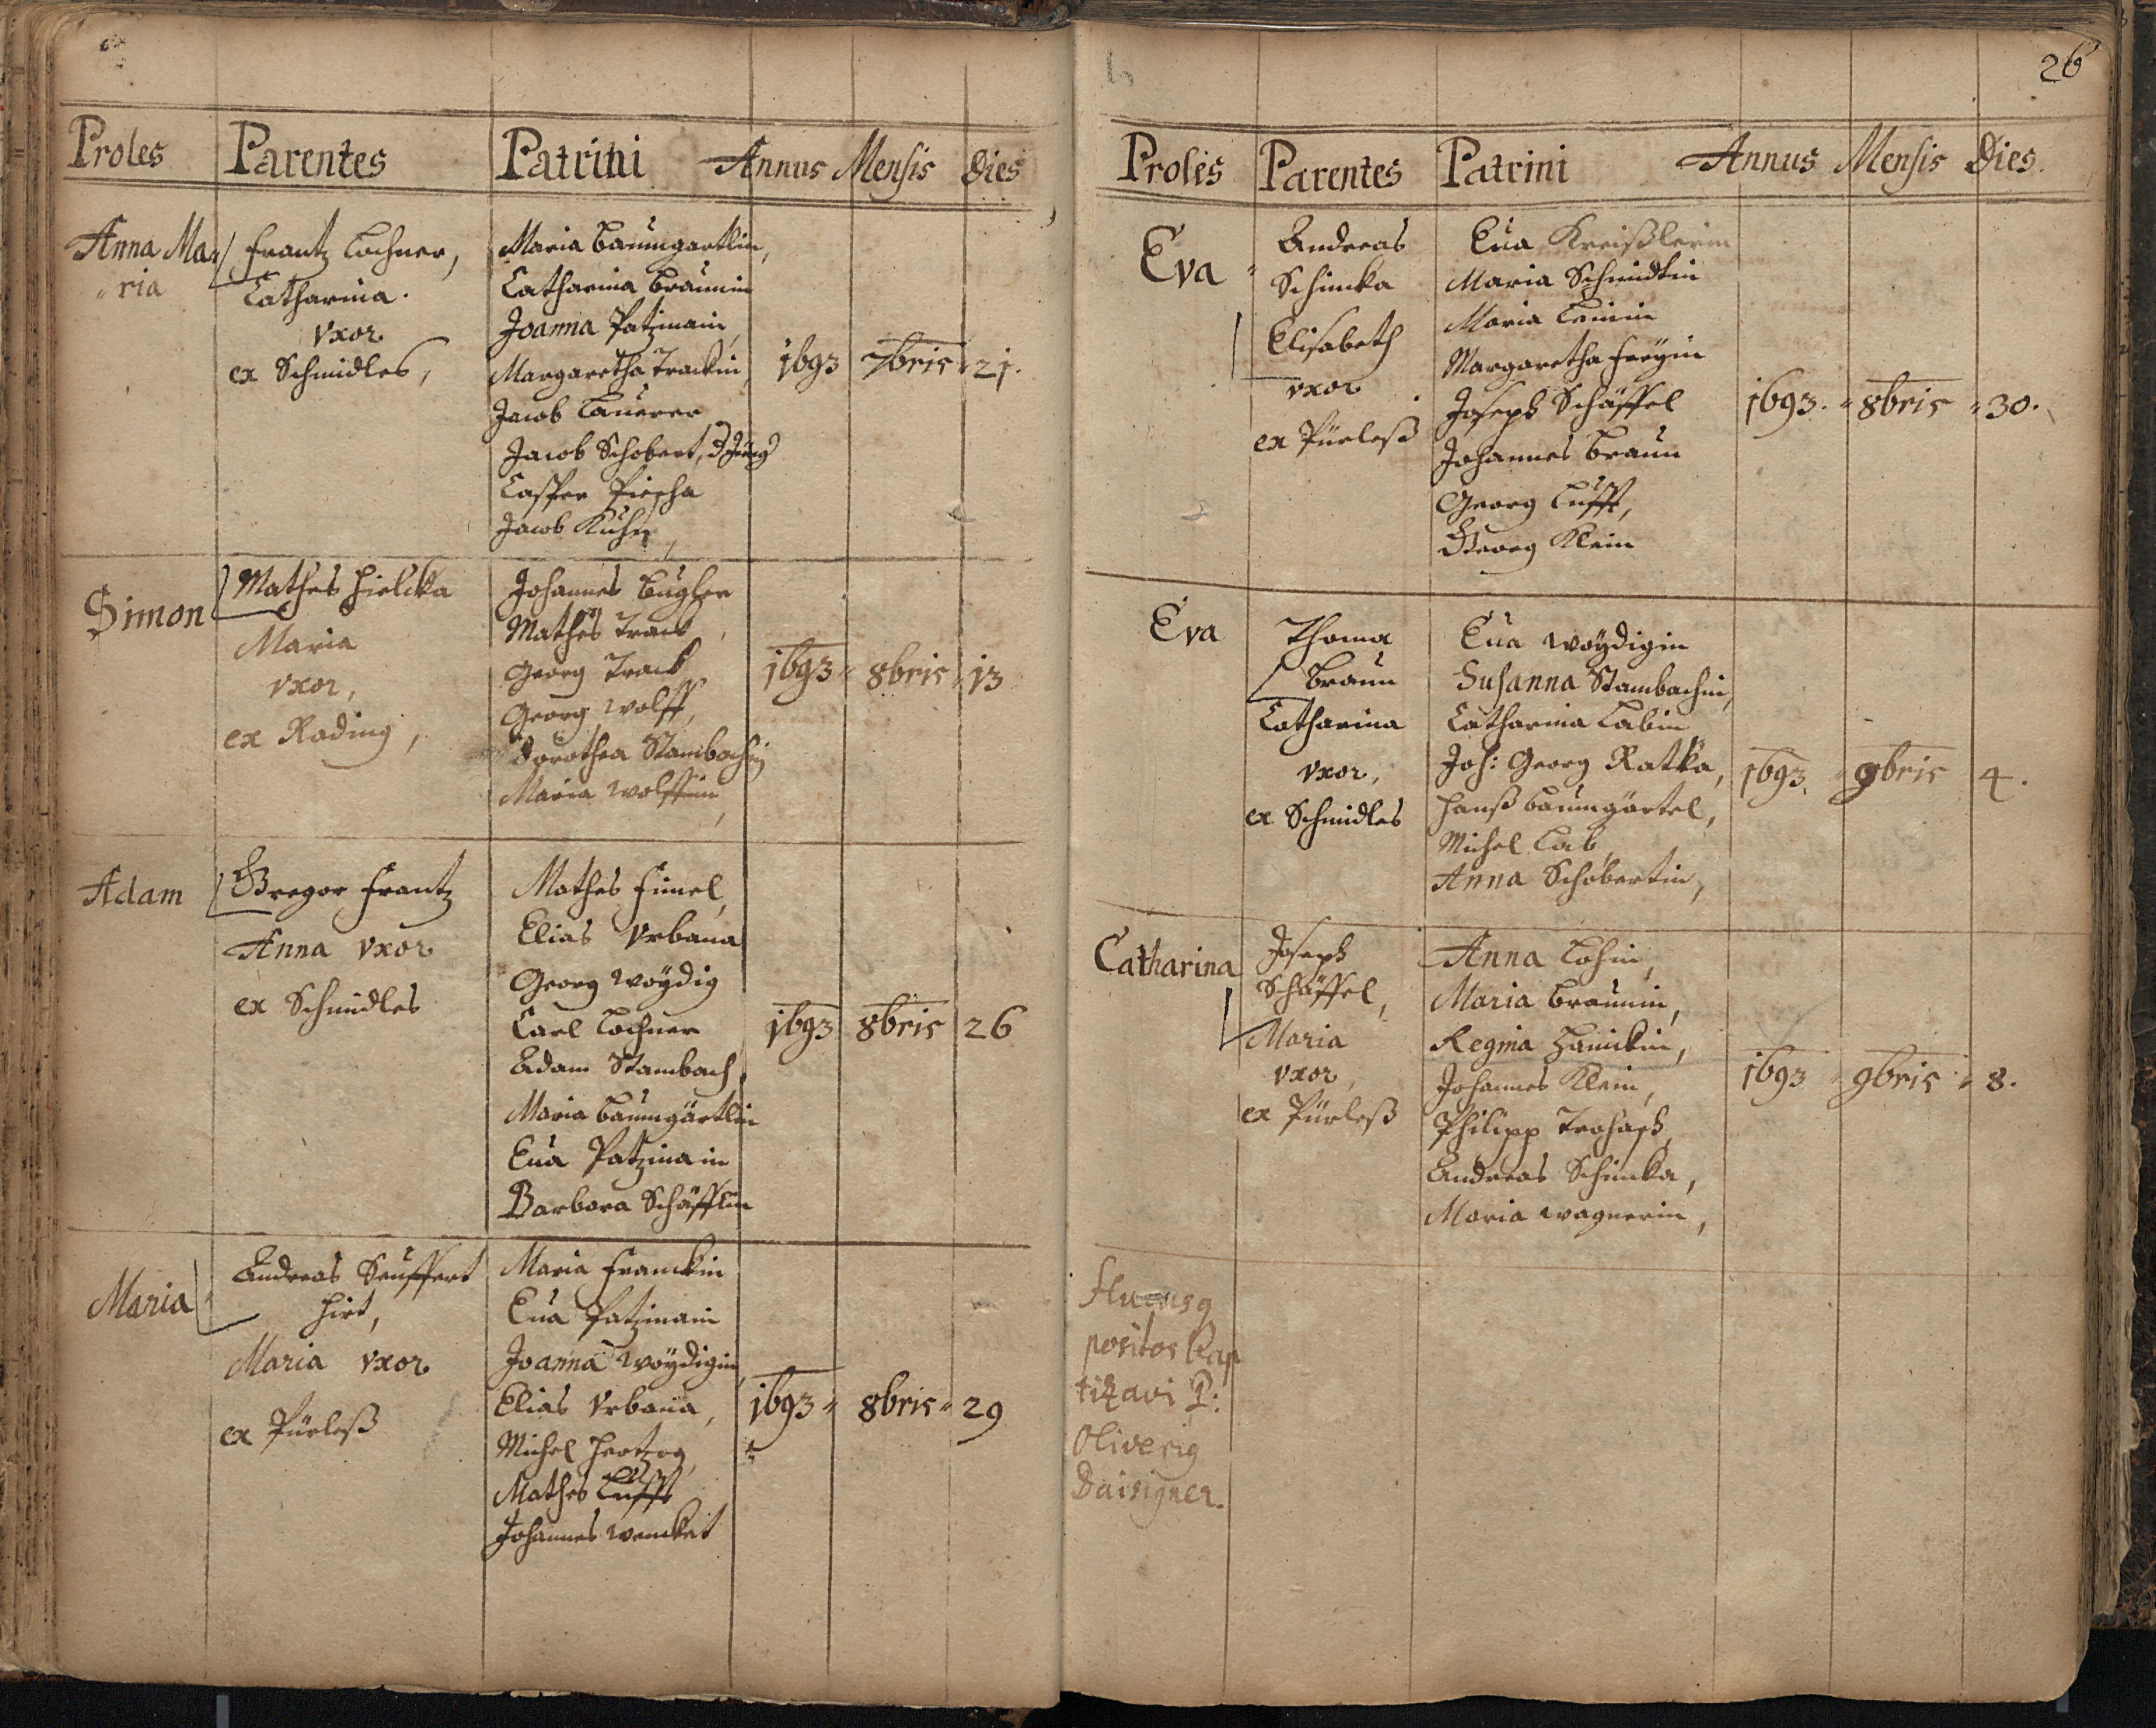 Proles Parentes Patrini Annus Mensis Dies
Anna Ma-
ria
Frantz Lochner,
Catharina.
vxor
ex Schmidles,
Maria Baumgartlin,
Catharina Braunin
Joanna Patzinain,
Margaretha Trackin,
Jacob Lauerer
Jacob Schobert, d Jung
Casper Piescha
Jacob Kuhn,
1693 7bris 21.
Simon
Mathes Hielcka
Maria
vxor,
ex Rading,
Johannes Bugler
Mathes Track,
Georg Track,
Georg Wolff,
Dorothea Stambachin
Maria Wolffin,
1693 8bris 13
Adam
Gregor Frantz
Anna vxor
ex Schmidles
Mathes Fimel,
Elias Vrbana
Georg Woydig
Carl Lochner
Adam Stambach,
Maria Baumgärtlin
Eua Patzinain
Barbara Schäfflin
1693 8bris 26
Maria
Andreas Seuffert
Hirt,
Maria vxor
ex Pürleß
Maria Franckin
Eua Patzinain
Joanna Woydigin,
Elias Vrbana,
Michel Hertzog,
Mathes Lufft
Johannes Wenckert
1693 8bris 29
26
Proles Parentes Patrini Annus Mensis Dies.
Eva
Andreas
Schimka
Elisabeth
vxor
ex Pürleß
Eua Kreißlerin
Maria Schmidtin
Maria
Margaretha Freyin
Joseph Schäffel
Johannes Braun
Georg Lufft,
Georg Klein
1693. 8bris 30.
Eva
Thoma
Braun
Catharina
vxor,
ex Schmidles
Eua Woydigin
Susanna Stambachin,
Catharina Labin
Joh: Georg Ratka,
Hanß Baumgärtel,
Michel Lab,
Anna Schobertin,
1693. 9bris 4.
Catharina
Joseph
Schäffel,
Maria
vxor,
ex Pürleß
Anna Lohin,
Maria Braunin,
Regina Hainckin,
Johannes Klein,
Philipp Trohasch,
Andreas Schimka,
Maria Wagnerin,
1693 9bris 8.
positos Bap
tizavi P:
Oliverig
Daisigner.